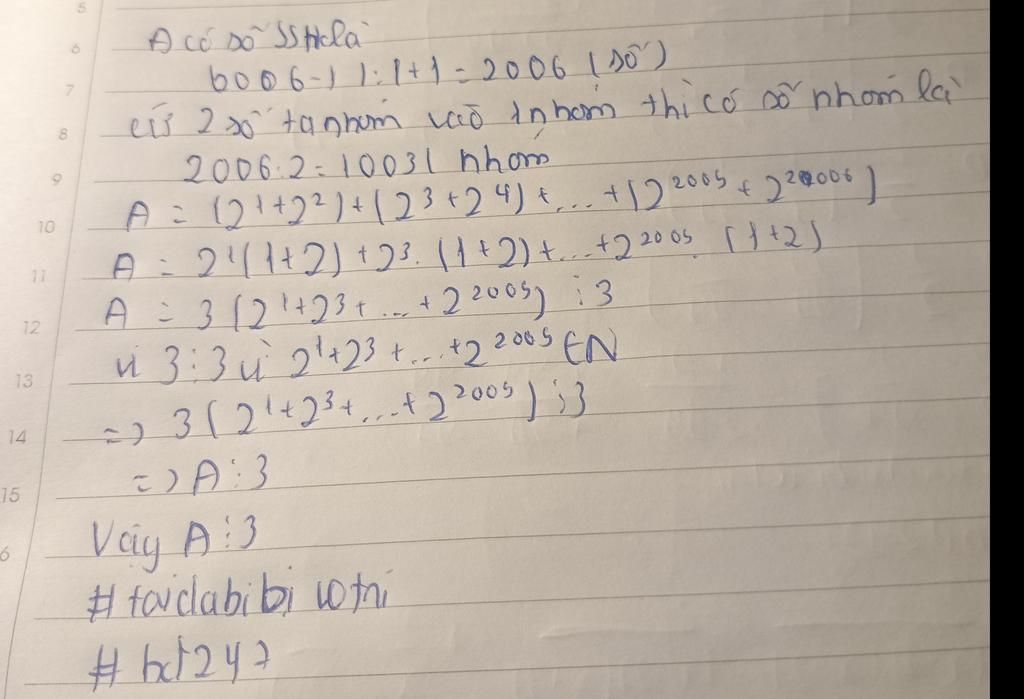 A có số SSH là
6006-1):1+1=2006 (số)
cứ 2 số ta nhóm vào 1 nhóm thì có số nhóm là
2006:2=1003( nhóm
A = (2¹+2²)+(2³+2⁴)+...+(2²⁰⁰⁵+2²⁰⁰⁶)
A = 2¹(1+2)+2³.(1+2)+...+2²⁰⁰⁵.(1+2)
A = 3(2¹+2³+...+2²⁰⁰⁵)⋮3
vì 3⋮3 vì 2¹+2³+...+2²⁰⁰⁵ ∈N
=> 3(2¹+2³+...+2²⁰⁰⁵)⋮3
=> A⋮3
Vậy A⋮3
#toidabibi
#hd247